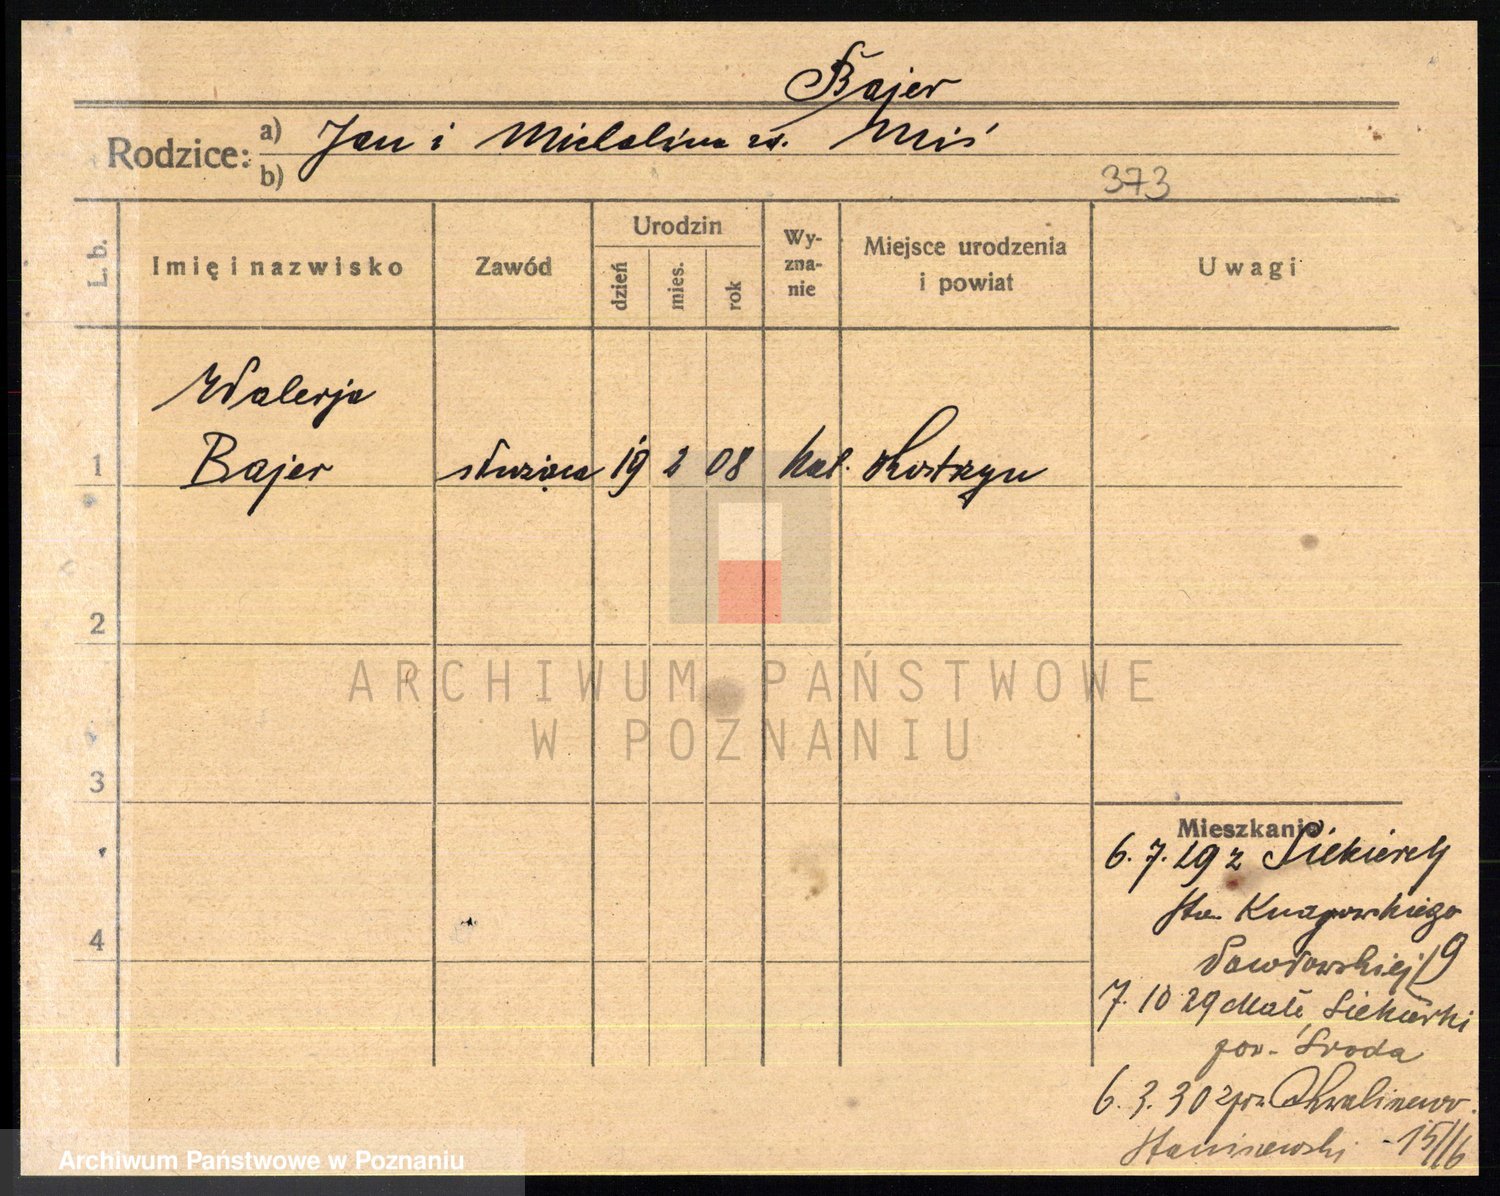 Bajer
Rodzice: a) Jan i Michalina zd. Miś
b)
373
L. b.
Imię i nazwisko
Zawód
Urodzin
dzień
mies.
rok
Wy-
zna-
nie
Miejsce urodzenia
i powiat
Uwagi
Walerja
1 Bajer służąca 19 2 08 kat. Kostrzyn
2
ARCHIWUM PAŃSTWOWE
W POZNANIU
3
Mieszkanie
6. 7. 29 z Siekierek
Knapowskiego
9
7. 10 29 Małe Siekierki
pow. Środa
6. 3. 30
Staniszewski - 15/
4
Archiwum Państwowe w Poznaniu